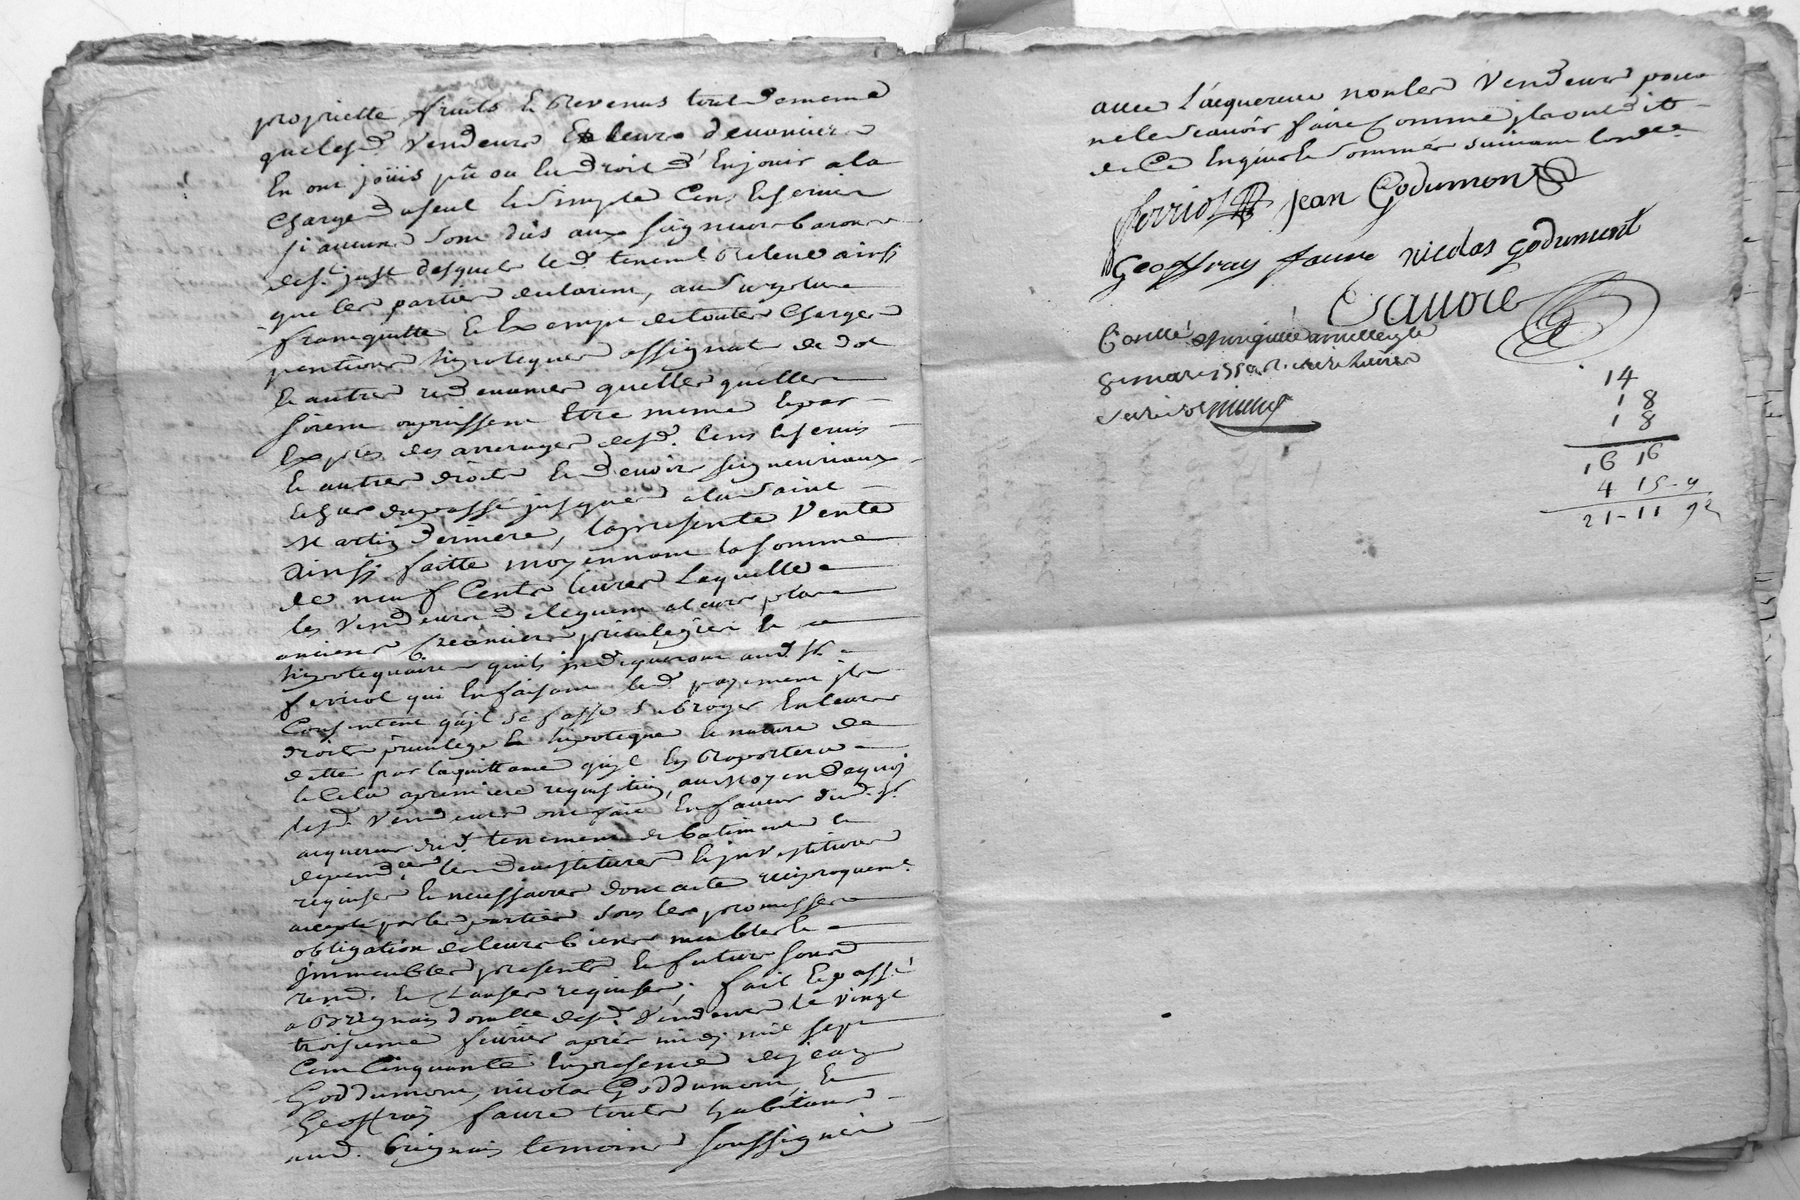 proprietté fruits & Revenus tout de meme
que lesd. Vendeurs & leurs devanciers
En ont joüis pû ou eu droit d'En jouir a la
Charge du seul & simple Cens & servis
si aucuns sont dûs aux seigneurs barons
desquels led. tenemt Releve ainsi
que les parties declarent, au surplus
franquitte & Exempt de toutes Charges
pentions hipoteques assignat de dot
& autres redevances quelles quelles
soient ou puissent Etre meme
Exprès des arrerages desd. Cens & servis
& autres droits & devoirs seigneuriaux
du passé jusques a la saint
Martin derniere, la presente Vente
Ainsi faitte moyennant la somme
de neuf Cents livres Laquelle
les Vendeurs deleguent a leurs plus
anciens Creanciers privilegiés &
hipotequaires quils indiqueront aud. Sr
ferriol qui En faisant led. payement ils
Consentent quil se fasse subroger En leurs
droits privilege & hipoteque & nature de
dette par la quittance quil En Raportera
& Cela a premiere requisition, au Moyen de quoi
lesd. Vendeurs ont fait En faveur dud. Sr
acquereur dud. tenement de batiments &
dependces les devestitures & investitures
requises & necessaires dont acte reciproquemt
accepté par les parties sous les promesses
obligation de leurs biens meubles &
Immeubles presents & futurs
renon. & Clauses requises, fait & passé
a Brignais domille desd. Vendeurs le vingt
troisieme fevrier après midi mil sept
Cent Cinquante En presence de jean
Goddumont, nicolas Goddumont, &
Geoffray faure touts habitans
aud. brignais temoins soussignés
avec l'acquereur non les Vendeurs pour
ne le scavoir faire Comme ils ont dit
de Ce Enquis & sommés suivant lordce
ferriol jean Godumont
Geoffray faure nicolas godumont
Controllé
8 mars 1750
14
1 8
1 8
16 16
4 15 9
21-11 9